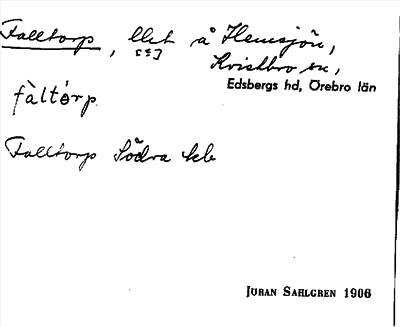 Falltorp, llet å Hemsjön,
[sic]
Kvistbro sn,
Edsbergs hd, Örebro län
fàltórp.
Falltorp Södra
JÖRAN SAHLGREN 1906